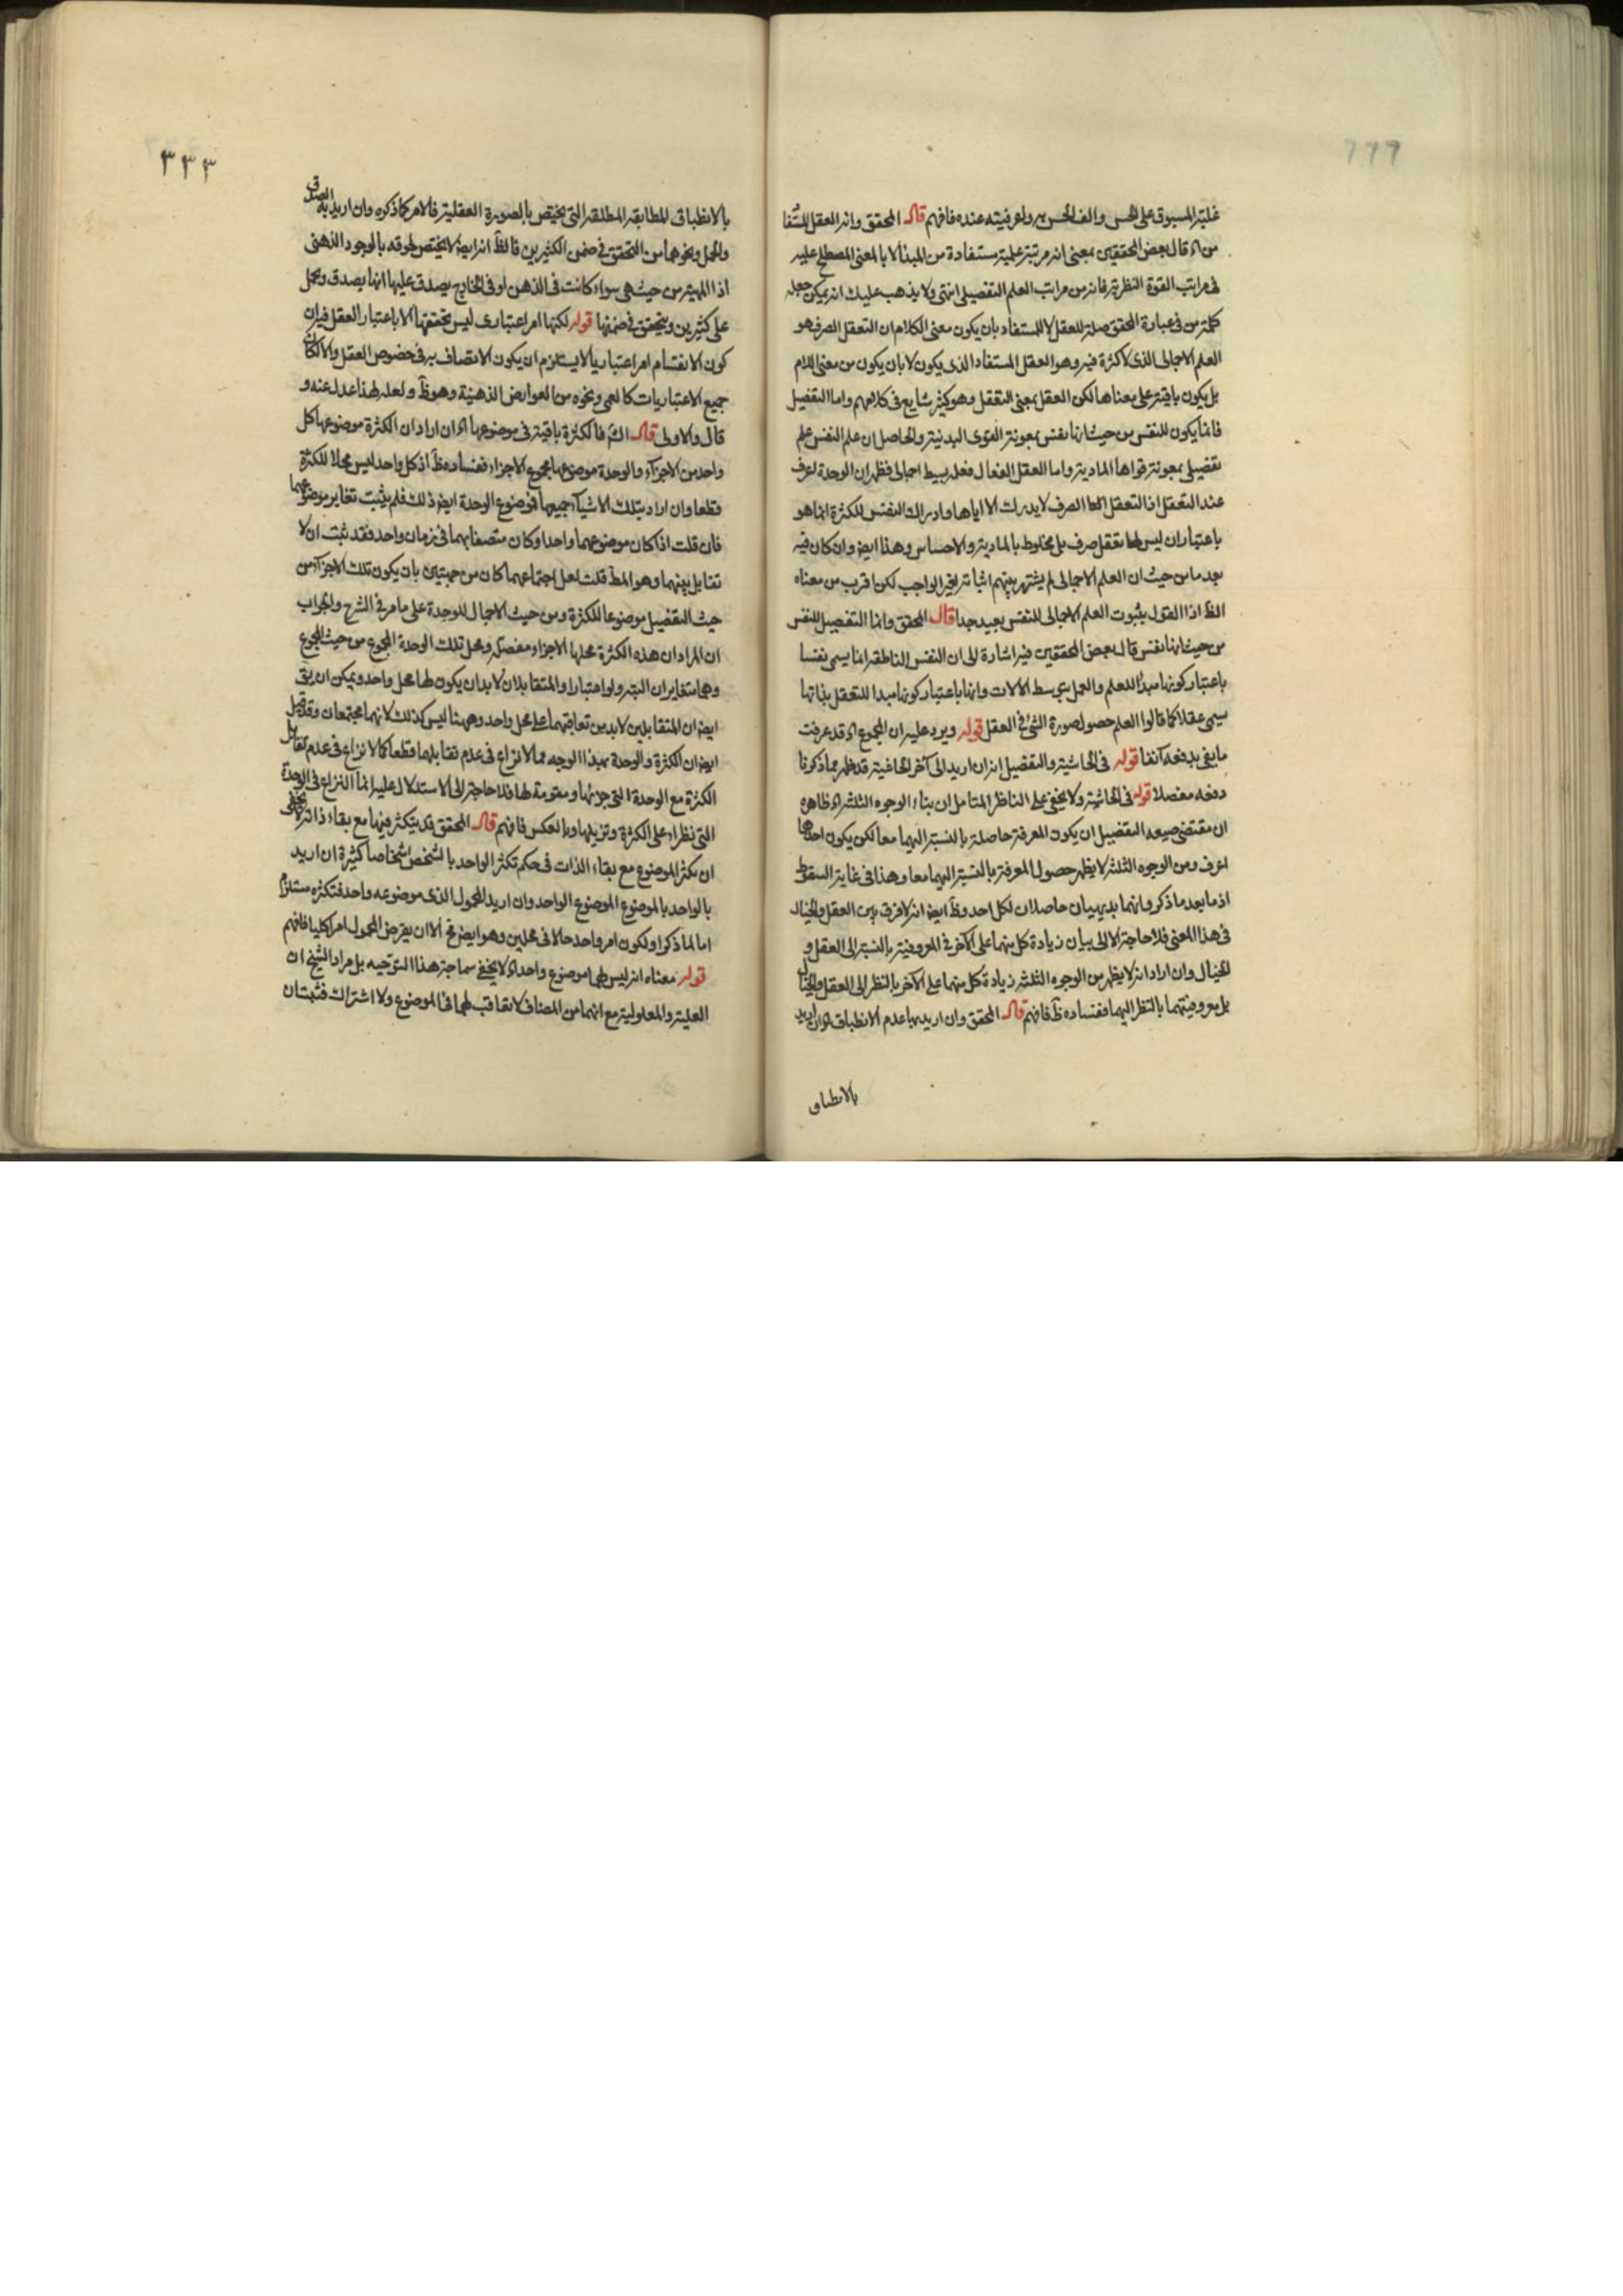 غلبته المسبوق على الحس والف الحس به واعرفيته عنده فافهم قال المحقق وانه العقل المستفا
من اه قال بعض المحققين بمعنى انه مرتبة علمية مستفادة من المبدا لا بالمعنى المصطلح عليه
فى مراتب القوة النظرية فانه من مراتب العلم التفصيلى انتهى ولا يذهب عليك انه يمكن جعل
كلمة من فى عبارة المحقق صلة للعقل لا للمستفاد بان يكون معنى الكلام ان التعقل الصرف هو
العلم الاجمالى الذى لا كثرة فيه وهو العقل المستفاد الذى يكون لا بان يكون من معنى اللام
بل يكون باقية على معناها لكن العقل بمعنى التعقل وهو كثير شايع فى كلامهم واما التفصيل
فانما يكون للنفس من حيث انها نفس بمعونة القوى البدنية والحاصل ان علم النفس علم
تفصيلى بمعونة قواها المادية واما العقل الفعال فعله بسيط اجمالى فظهر ان الوحدة اعرف
عند التعقل اذ التعقل الصرف لا يدرك الا اياها وادراك النفس للكثرة انما هو
باعتبار ان ليس لها تعقل صرف بل مخلوط بالمادية والاحساس وهذا ايض وان كان فيه
بعد ما من حيث ان العلم الاجمالى لم يشتهر بينهم اثباته لغير الواجب لكن اقرب من معناه
الظ اذ القول بثبوت العلم الاجمالى للنفس بعيد جدا قال المحقق وانما التفصيل للنفس
من حيث انها نفس قال بعض المحققين فيه اشارة الى ان النفس الناطقة انما يسمى نفسا
باعتبار كونها مبدأ للعلم والعمل بتوسط الالات وانها باعتبار كونها مبدا للتعقل بذاتها
يسمى عقلا كما قالوا العلم حصول صورة الشئ فى العقل قوله ويرد عليه ان المجموع اه قد عرفت
ما يفى بدفعه آنفا قوله فى الحاشية والتفصيل انه ان اريد الى آخر الحاشية قد ظهر مما ذكرنا
دفعه مفصلا قوله فى الحاشية ولا يخفى على الناظر المتامل ان بناء الوجوه الثلثة اه ظاهره
ان مقتضى صيغة التفضيل ان يكون المعرفة حاصلة بالنسبة اليهما معا لكن يكون احدها
اعرف ومن الوجوه الثلثة لا يظهر حصول المعرفة بالنسبة اليهما معا وهذا فى غاية السقوط
اذ ما بعد ما ذكر وانهما بديهيان حاصلان لكل احد وظ ايض انه لا فرق بين العقل والخيال
فى هذا المعنى فلا حاجة الا الى بيان زيادة كل منهما على الآخر فى المعروفية بالنسبة الى العقل و
الخيال وان اراد انه لا يظهر من الوجوه الثلثة زيادة كل منهما على الآخر بالنظر الى العقل والخيال
بل معروضيتهما بالنظر اليهما ففساده ظ فافهم قال المحقق وان اريد بها عدم الانطباق اه ان اريد
بالانطباق
٣٣٣
بالانطباق المطابقة المطلقة التى يختص بالصورة العقلية فالامر كما ذكره وان اريد به الصدق
والحمل ونحوهما من التحقق فى ضمن الكثيرين فالظ انه ايض لا يختص لحوقه بالوجود الذهنى
اذ المهية من حيث هى سواء كانت فى الذهن او فى الخارج يصدق عليها انها يصدق ويحمل
على كثيرين ويتحقق فى ضمنها قوله لكنها امر اعتبارى ليس تحققها الا باعتبار العقل فيه ان
كون الانقسام امرا اعتباريا لا يستلزم ان يكون الاتصاف به فى خصوص العقل والا لكان
جميع الاعتباريات كالعمى ونحوه من العوارض الذهنية وهو ظ ولعله لهذا عدل عنه و
قال والاولى قال الش فالكثرة باقية فى موضوعها اه ان اراد ان الكثرة موضوعها كل
واحد من الاجزاء والوحدة موضوعها مجموع الاجزاء ففساده ظ اذ كل واحد ليس محلا للكثرة
قطعا وان اراد بتلك الاشياء جميعها فموضوع الوحدة ايض ذلك فلم يثبت تغاير موضوعهما
فان قلت اذا كان موضوعهما واحدا وكان متصفا بهما فى زمان واحد فقد ثبت ان لا
تقابل بينهما وهو المط قلت لعل اجتماعهما كان من جهتين بان يكون تلك الاجزاء من
حيث التفصيل موضوعا للكثرة ومن حيث الاجمال للوحدة على ما مر فى الشرح والجواب
ان المراد ان هذه الكثرة محلها الاجزاء مفصلة ومحل تلك الوحدة المجموع من حيث المجموع
وهما متغايران البتة ولو اعتبارا والمتقابلان لا بد ان يكون لهما محل واحد ويمكن ان يق
ايض ان المتقابلين لا بد من تعاقبهما على محل واحد وههنا ليس كذلك لانهما مجتمعان وقد قيل
ايض ان الكثرة والوحدة بهذا الوجه مما لا نزاع فى عدم تقابلهما قطعا كما لا نزاع فى عدم تقابل
الكثرة مع الوحدة التى جزئها ومقومة لها فلا حاجة الى الاستدلال عليه انما النزاع فى الوحدة
التى نظراء على الكثرة وتزيلها وبالعكس فافهم قال المحقق قد يتكثر فيها مع بقاء ذاته لا يخفى
ان تكثر الموضوع مع بقاء الذات فى حكم تكثر الواحد بالشخص اشخاصا كثيرة ان اريد
بالواحد بالموضوع الموضوع الواحد وان اريد المحمول الذى موضوعه واحد فتكثره مستلزم
اما لما ذكر او لكون امر واحد حالا فى محلين وهو ايض مح الا ان يفرض المحمول امرا كليا فافهم
قوله معناه انه ليس لهما موضوع واحد اه لا يخفى سماجة هذا التوجيه بل مراد الشيخ ان
العلية والمعلولية مع انهما من المضاف لا تعاقب لهما فى الموضوع ولا اشتراك فثبت ان